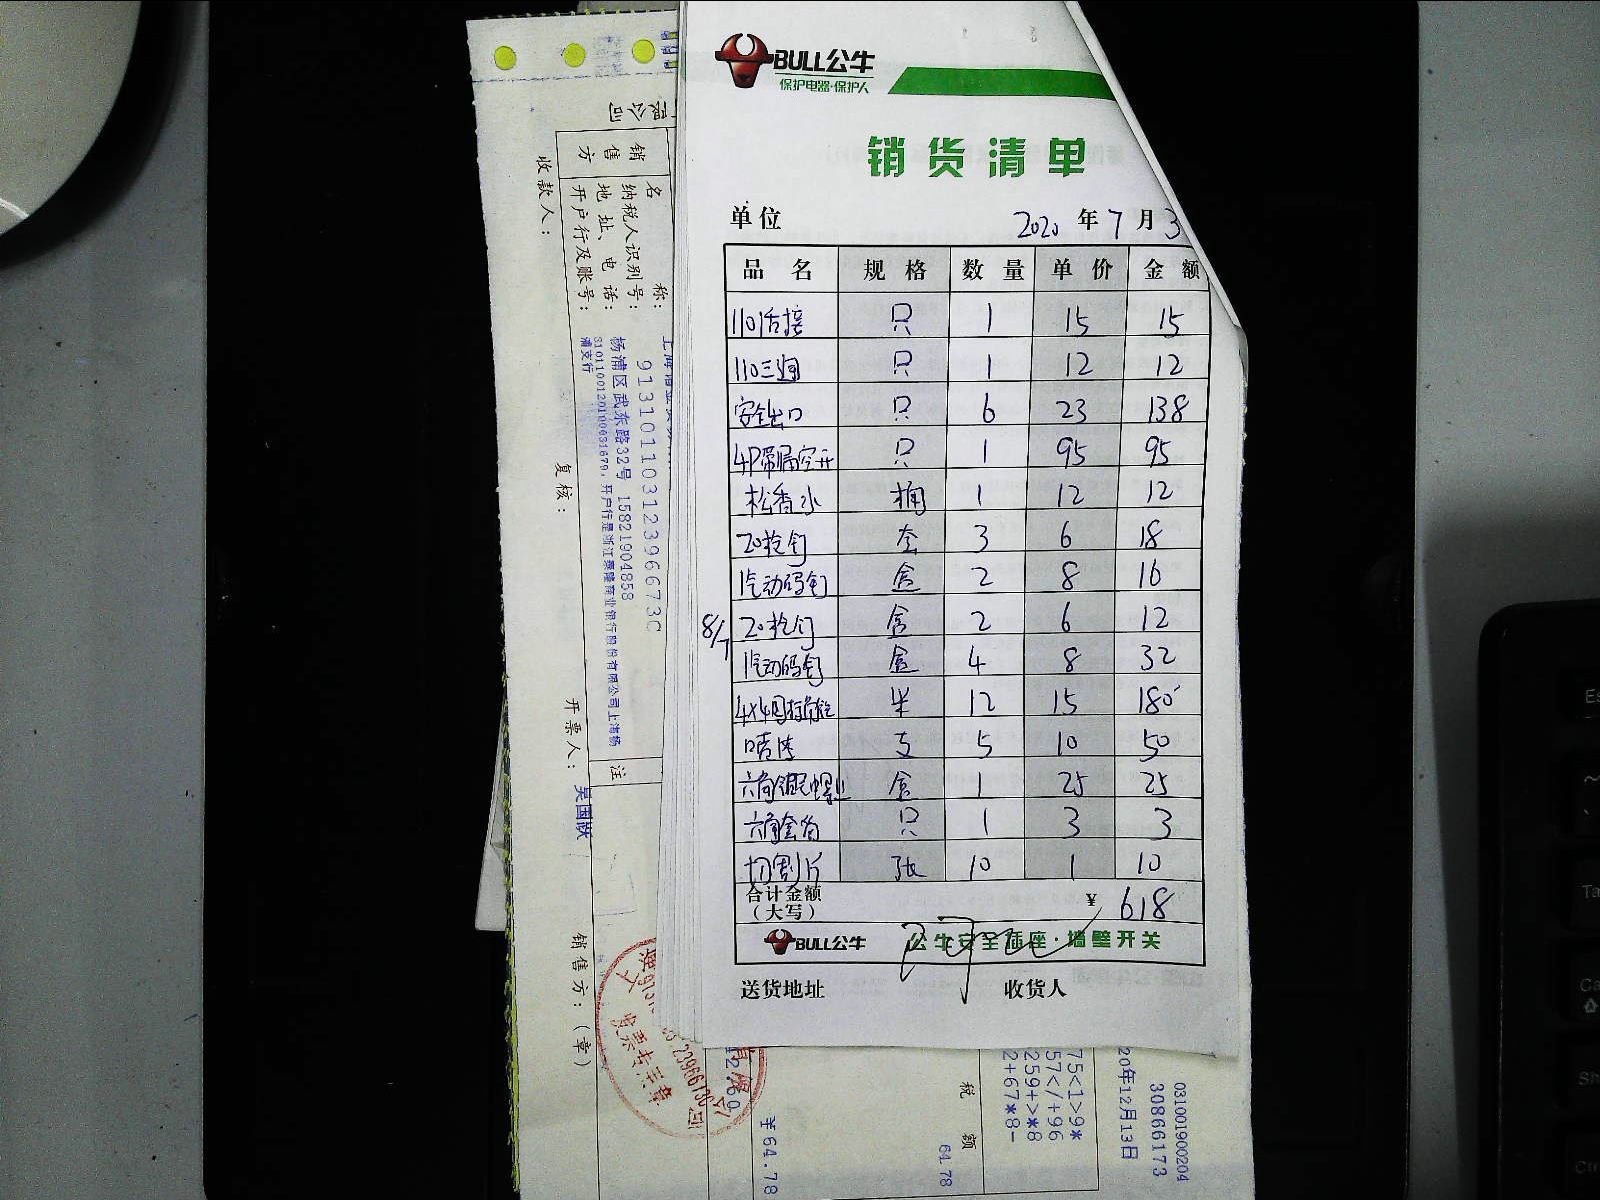 BULL公牛
保护电器·保护人
销货清单
单位 2020 年 7 月 3
品名 规格 数量 单价 金额
110活接 只 1 15 15
110三通 只 1 12 12
安全出口 只 6 23 138
4P带漏空开 只 1 95 95
松香水 桶 1 12 12
20枪钉 盒 3 6 18
汽动码钉 盒 2 8 16
8/7 20枪钉 盒 2 6 12
汽动码钉 盒 4 8 32
4X4 米 12 15 180
喷漆 支 5 10 50
六角 盒 1 25 25
六角套筒 只 1 3 3
切割片 张 10 1 10
合计金额
(大写) ¥ 618
BULL公牛 公牛安全插座·墙壁开关
送货地址 收货人
销售方
名 称:
纳税人识别号: 91310110312396673C
地址、电话: 杨浦区武东路32号 15821904858
开户行及账号: 开户行是浙江泰隆商业银行股份有限公司上海杨浦支行
收款人:
复核:
开票人: 吴国跃
销售方:(章)
注
发票专用章
税 额
64.78
¥64.78
75<1>9*
57</+96
259+>*8
2+67*8-
031001900204
30866173
20年12月13日